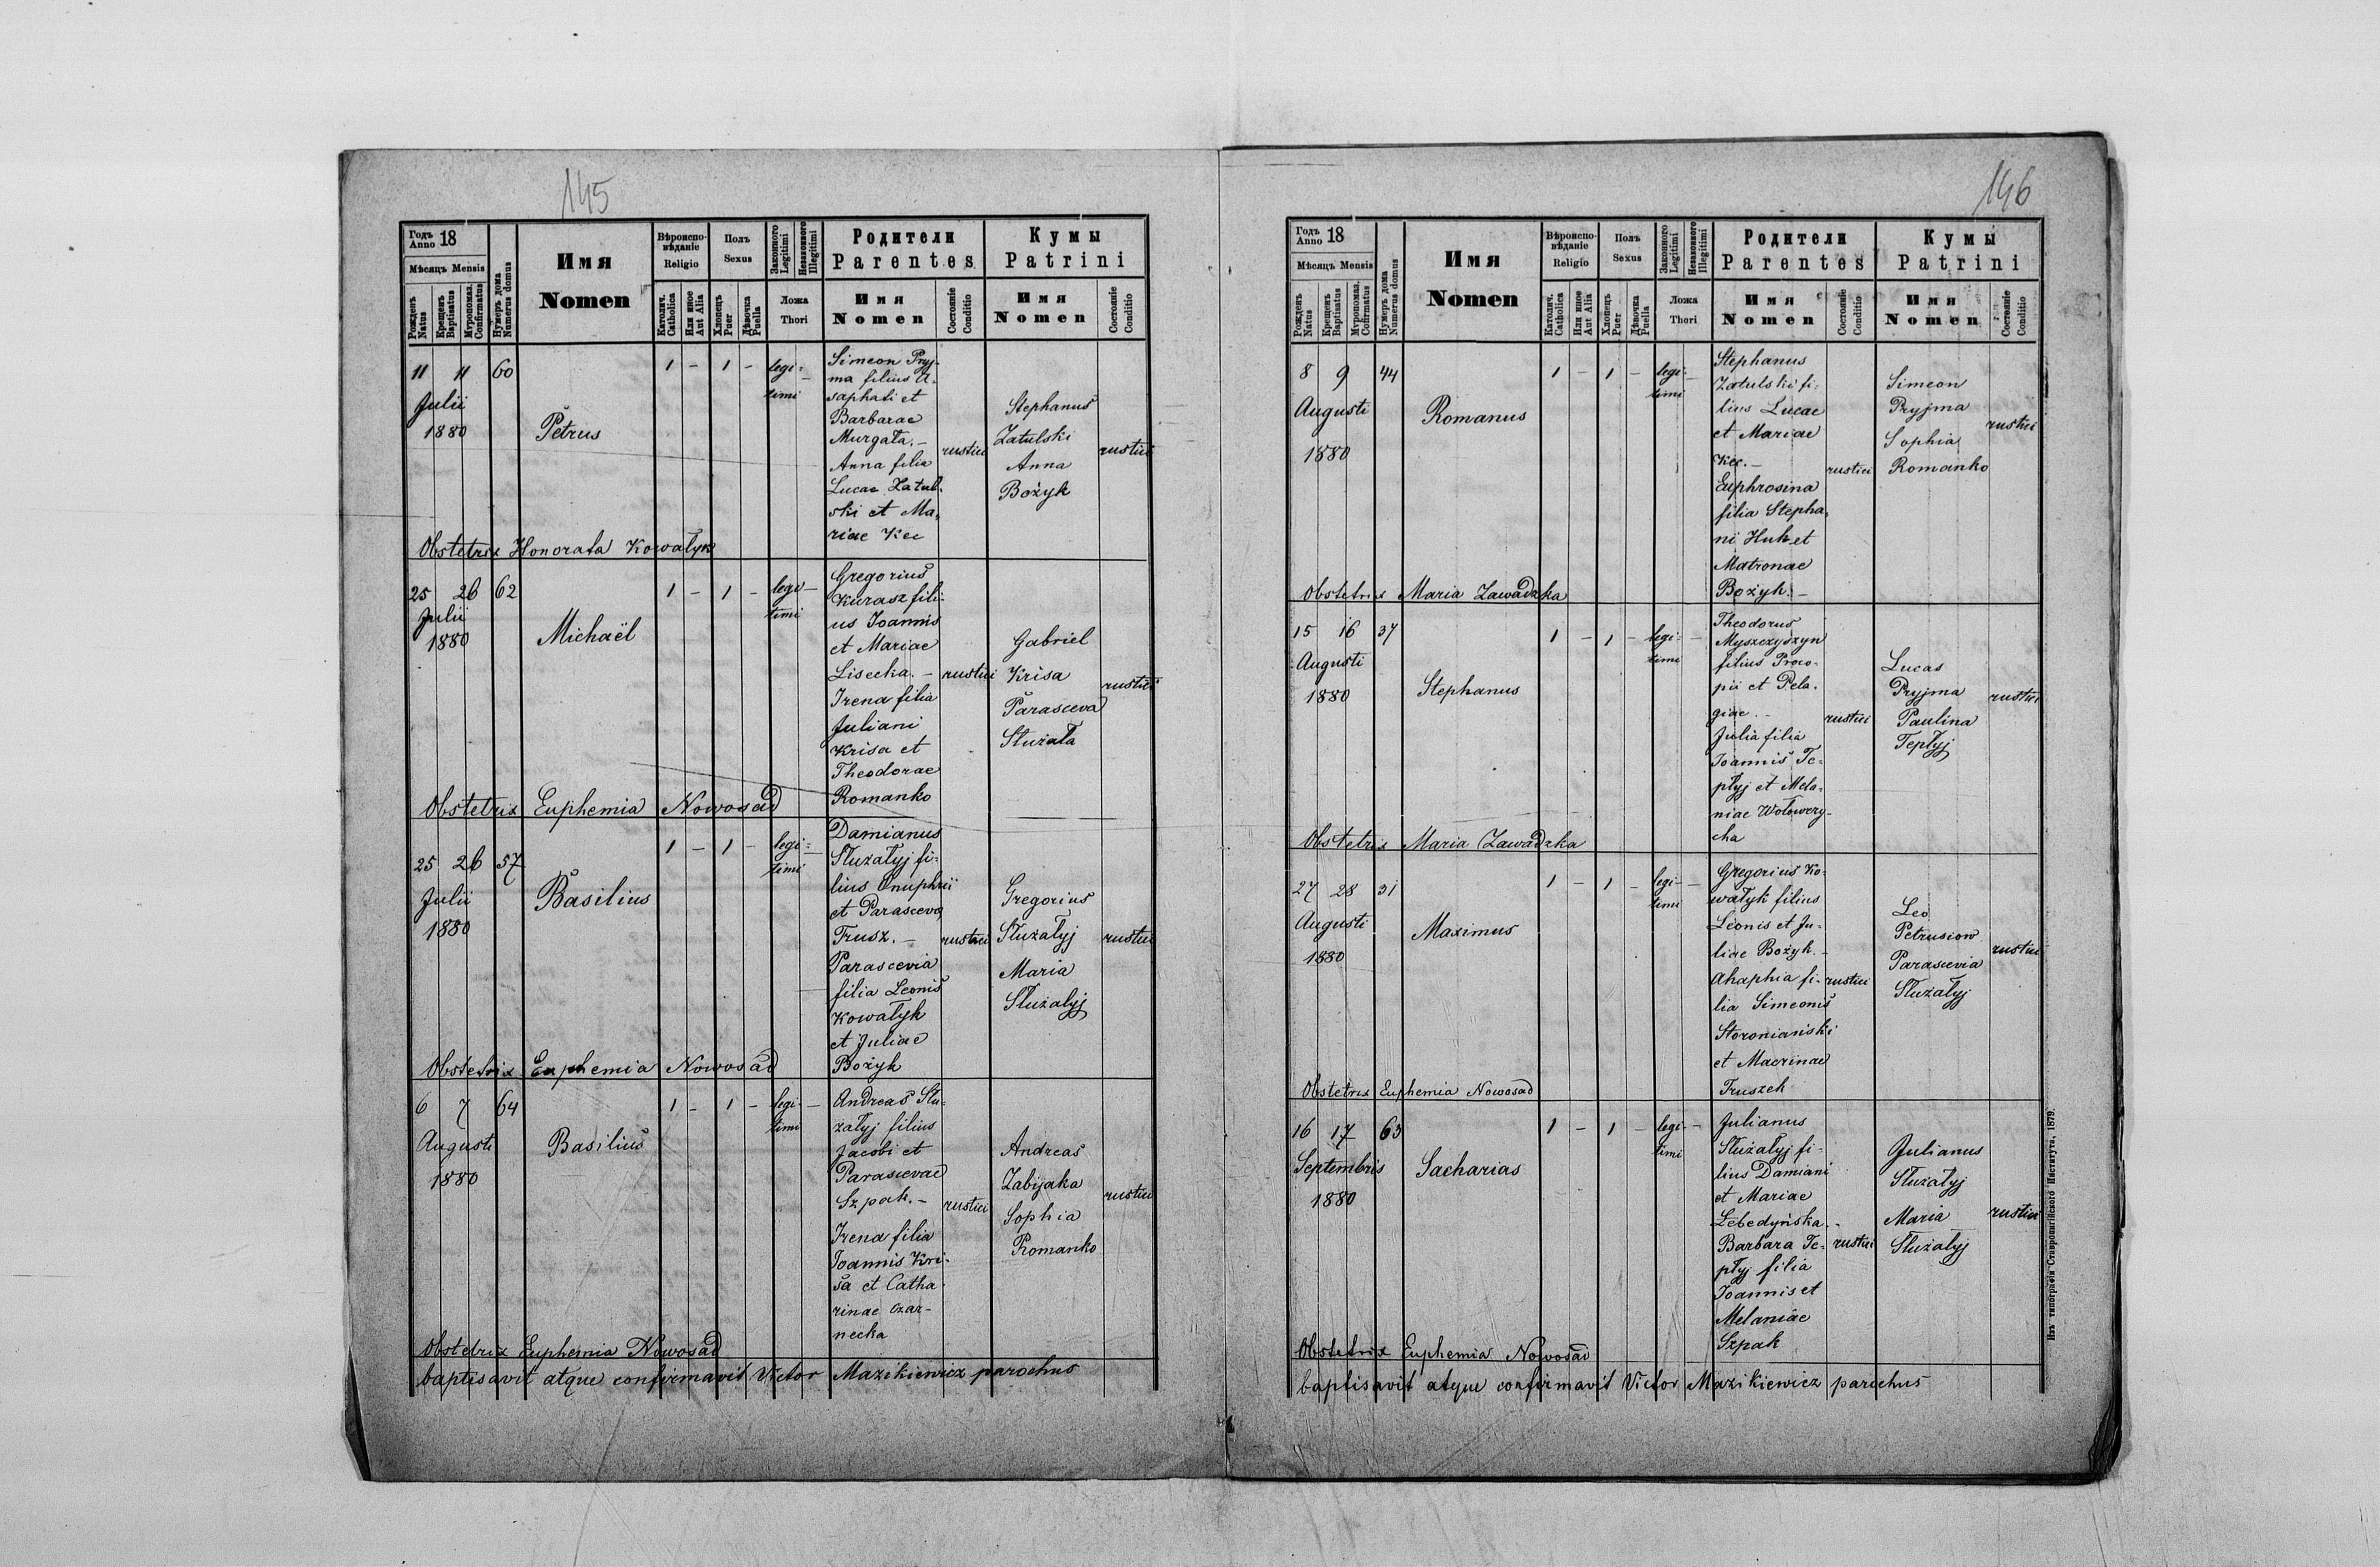 145
Годъ
Anno 18
Мѣсяцъ Mensis
Рожденъ
Natus
Крещенъ
Baptisatus
Мѵропомаз.
Confirmatus
Нумеръ дома
Numerus domus
Имя
Nomen
Вѣроиспо-
вѣданіе
Religio
Католич.
Catholica
Или иное
Aut Alia
Полъ
Sexus
Хлопецъ
Puer
Дѣвочка
Puella
Законного
Legitimi
Незаконного
Illegitimi
Ложа
Thori
Родители
Parentes
Имя
Nomen
Состояніе
Conditio
Кумы
Patrini
Имя
Nomen
Состояніе
Conditio
11 11 60
Julii
1880
Petrus
1 - 1 - legi-
timi
Simeon Pryj-
ma filius A-
saphati et
Barbarae
Murgała.-
Anna filia
Lucae Zatul-
ski et Ma-
riae Kec
rustici
Stephanus
Zatulski
Anna
Bożyk
rustici
Obstetrix Honorata Kowałyk
25 26 62
Julii
1880
Michaël
1 - 1 - legi-
timi
Gregorius
Kurasz fili-
us Joannis
et Mariae
Lisecka.-
Irena filia
Juliani
Krisa et
Theodorae
Romanko
rustici
Gabriel
Krisa
Parasceva
Służała
rustici
Obstetrix Euphemia Nowosad
25 26 57
Julii
1880
Basilius
1 - 1 - legi-
timi
Damianus
Służałyj fi-
lius Onuphrii
et Parasceva
Trusz.-
Parascevia
filia Leonis
Kowałyk
et Juliae
Bożyk
rustici
Gregorius
Służałyj
Maria
Służałyj
rustici
Obstetrix Euphemia Nowosad
6 7 64
Augusti
1880
Basilius
1 - 1 - legi-
timi
Andreas Słu-
załyj filius
Jacobi et
Parascevae
Szpak.-
Irena filia
Joannis Kri-
sa et Catha-
rinae Czar-
necka
rustici
Andreas
Zabijaka
Sophia
Romanko
rustici
Obstetrix Euphemia Nowosad
baptisavit atque confirmavit Victor Mazikiewicz parochus
146
Годъ
Anno 18
Мѣсяцъ Mensis
Рожденъ
Natus
Крещенъ
Baptisatus
Мѵропомаз.
Confirmatus
Нумеръ дома
Numerus domus
Имя
Nomen
Вѣроиспо-
вѣданіе
Religio
Католич.
Catholica
Или иное
Aut Alia
Полъ
Sexus
Хлопецъ
Puer
Дѣвочка
Puella
Законного
Legitimi
Незаконного
Illegitimi
Ложа
Thori
Родители
Parentes
Имя
Nomen
Состояніе
Conditio
Кумы
Patrini
Имя
Nomen
Состояніе
Conditio
8 9 44
Augusti
1880
Romanus
1 - 1 - legi-
timi
Stephanus
Zatulski fi-
lius Lucae
et Mariae
Kec.-
Euphrosina
filia Stepha-
ni Huk et
Matronae
Bożyk.-
rustici
Simeon
Pryjma
Sophia
Romanko
rustici
Obstetrix Maria Zawadzka
15 16 37
Augusti
1880
Stephanus
1 - 1 - legi-
timi
Theodorus
Myszczyszyn
filius Proco-
pii et Pela-
giae.-
Julia filia
Joannis Te-
płyj et Mela-
niae Wołowery-
cha
rustici
Lucas
Pryjma
Paulina
Tepłyj
rustici
Obstetrix Maria Zawadzka
27 28 31
Augusti
1880
Maximus
1 - 1 - legi-
timi
Gregorius Ko-
wałyk filius
Leonis et Ju-
liae Bożyk.-
Ahaphia fi-
lia Simeonis
Storoniański
et Macrinae
Truszek
rustici
Leo
Petrusiow
Parascevia
Służałyj
rustici
Obstetrix Euphemia Nowosad
16 17 63
Septembris
1880
Sacharias
1 - 1 - legi-
timi
Julianus
Służałyj fi-
lius Damiani
et Mariae
Lebedyńska.-
Barbara Te-
płyj filia
Joannis et
Melaniae
Szpak
rustici
Julianus
Służałyj
Maria
Służałyj
rustici
Obstetrix Euphemia Nowosad
baptisavit atque confirmavit Victor Mazikiewicz parochus
Изъ типографіи Ставропигійского Института, 1879.